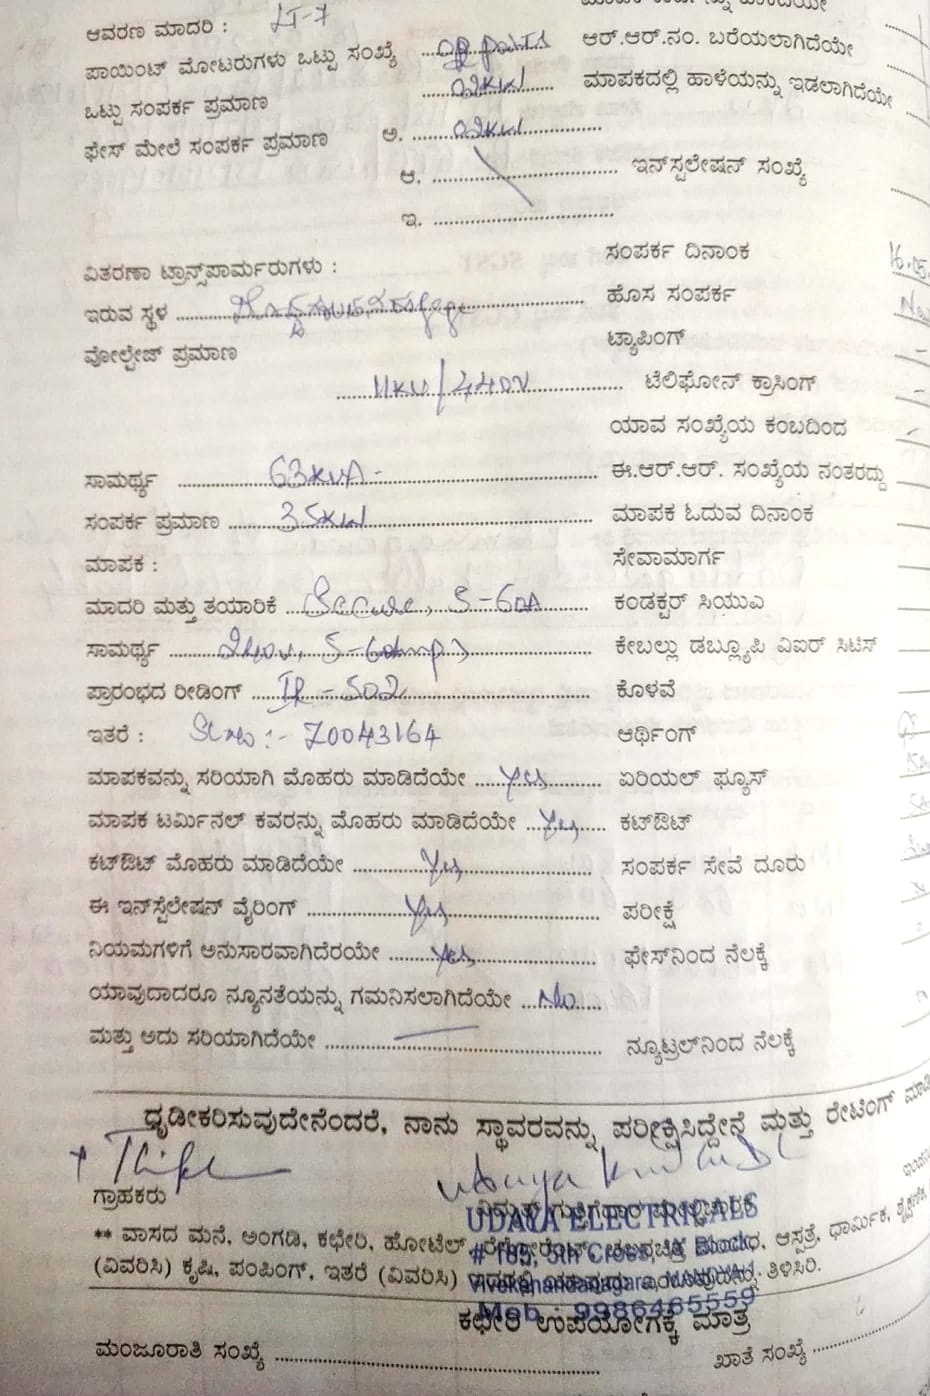 ಆವರಣ ಮಾದರಿ : LT-7
ಪಾಯಿಂಟ್ ಮೋಟರುಗಳು ಒಟ್ಟು ಸಂಖ್ಯೆ ಆರ್.ಆರ್.ನಂ. ಬರೆಯಲಾಗಿದೆಯೇ
ಒಟ್ಟು ಸಂಪರ್ಕ ಪ್ರಮಾಣ 02KW ಮಾಪಕದಲ್ಲಿ ಹಾಳೆಯನ್ನು ಇಡಲಾಗಿದೆಯೇ
ಫೇಸ್ ಮೇಲೆ ಸಂಪರ್ಕ ಪ್ರಮಾಣ ಅ. 02KW
ಆ. ಇನ್‌ಸ್ಟಲೇಷನ್ ಸಂಖ್ಯೆ
ಇ.
ಸಂಪರ್ಕ ದಿನಾಂಕ 16.05
ವಿತರಣಾ ಟ್ರಾನ್ಸ್‌ಪಾರ್ಮರುಗಳು :
ಇರುವ ಸ್ಥಳ ಹೊಸ ಸಂಪರ್ಕ
ವೋಲ್ಟೇಜ್ ಪ್ರಮಾಣ ಟ್ಯಾಪಿಂಗ್
11KV/440V ಟೆಲಿಫೋನ್ ಕ್ರಾಸಿಂಗ್
ಯಾವ ಸಂಖ್ಯೆಯ ಕಂಬದಿಂದ
ಸಾಮರ್ಥ್ಯ 63KVA ಈ.ಆರ್.ಆರ್. ಸಂಖ್ಯೆಯ ನಂತರದ್ದು
ಸಂಪರ್ಕ ಪ್ರಮಾಣ 35KW ಮಾಪಕ ಓದುವ ದಿನಾಂಕ
ಮಾಪಕ : ಸೇವಾಮಾರ್ಗ
ಮಾದರಿ ಮತ್ತು ತಯಾರಿಕೆ Secure, 5-60A ಕಂಡಕ್ಟರ್ ಸಿಯುಎ
ಸಾಮರ್ಥ್ಯ 240V, 5-60Amp ಕೇಬಲ್ಲು ಡಬ್ಲ್ಯೂಪಿ ವಿಐರ್ ಸಿಟಿಸ್
ಪ್ರಾರಂಭದ ರೀಡಿಂಗ್ IR-502 ಕೊಳವೆ
ಇತರೆ : Slno :- 70043164 ಆರ್ಥಿಂಗ್
ಮಾಪಕವನ್ನು ಸರಿಯಾಗಿ ಮೊಹರು ಮಾಡಿದೆಯೇ Yes ಏರಿಯಲ್ ಫ್ಯೂಸ್
ಮಾಪಕ ಟರ್ಮಿನಲ್ ಕವರನ್ನು ಮೊಹರು ಮಾಡಿದೆಯೇ Yes ಕಟ್‌ಔಟ್
ಕಟ್‌ಔಟ್ ಮೊಹರು ಮಾಡಿದೆಯೇ Yes ಸಂಪರ್ಕ ಸೇವೆ ದೂರು
ಈ ಇನ್‌ಸ್ಟೆಲೇಷನ್ ವೈರಿಂಗ್ Yes ಪರೀಕ್ಷೆ
ನಿಯಮಗಳಿಗೆ ಅನುಸಾರವಾಗಿದೆರಯೇ Yes ಫೇಸ್‌ನಿಂದ ನೆಲಕ್ಕೆ
ಯಾವುದಾದರೂ ನ್ಯೂನತೆಯನ್ನು ಗಮನಿಸಲಾಗಿದೆಯೇ No
ಮತ್ತು ಅದು ಸರಿಯಾಗಿದೆಯೇ ನ್ಯೂಟ್ರಲ್‌ನಿಂದ ನೆಲಕ್ಕೆ
ಧೃಡೀಕರಿಸುವುದೇನೆಂದರೆ, ನಾನು ಸ್ಥಾವರವನ್ನು ಪರೀಕ್ಷಿಸಿದ್ದೇನೆ ಮತ್ತು ರೇಟಿಂಗ್
ಗ್ರಾಹಕರು
UDAYA ELECTRICALS
** ವಾಸದ ಮನೆ, ಅಂಗಡಿ, ಕಛೇರಿ, ಹೋಟೆಲ್, ಆಸ್ಪತ್ರೆ, ಧಾರ್ಮಿಕ, ಶೈಕ್ಷಣಿಕ,
# 185, 5th Cross, Block
(ವಿವರಿಸಿ) ಕೃಷಿ, ಪಂಪಿಂಗ್, ಇತರೆ (ವಿವರಿಸಿ) ತಿಳಿಸಿರಿ.
Vivekanandanagara,
Mob : 9986465559
ಕಛೇರಿ ಉಪಯೋಗಕ್ಕೆ ಮಾತ್ರ
ಮಂಜೂರಾತಿ ಸಂಖ್ಯೆ ಖಾತೆ ಸಂಖ್ಯೆ